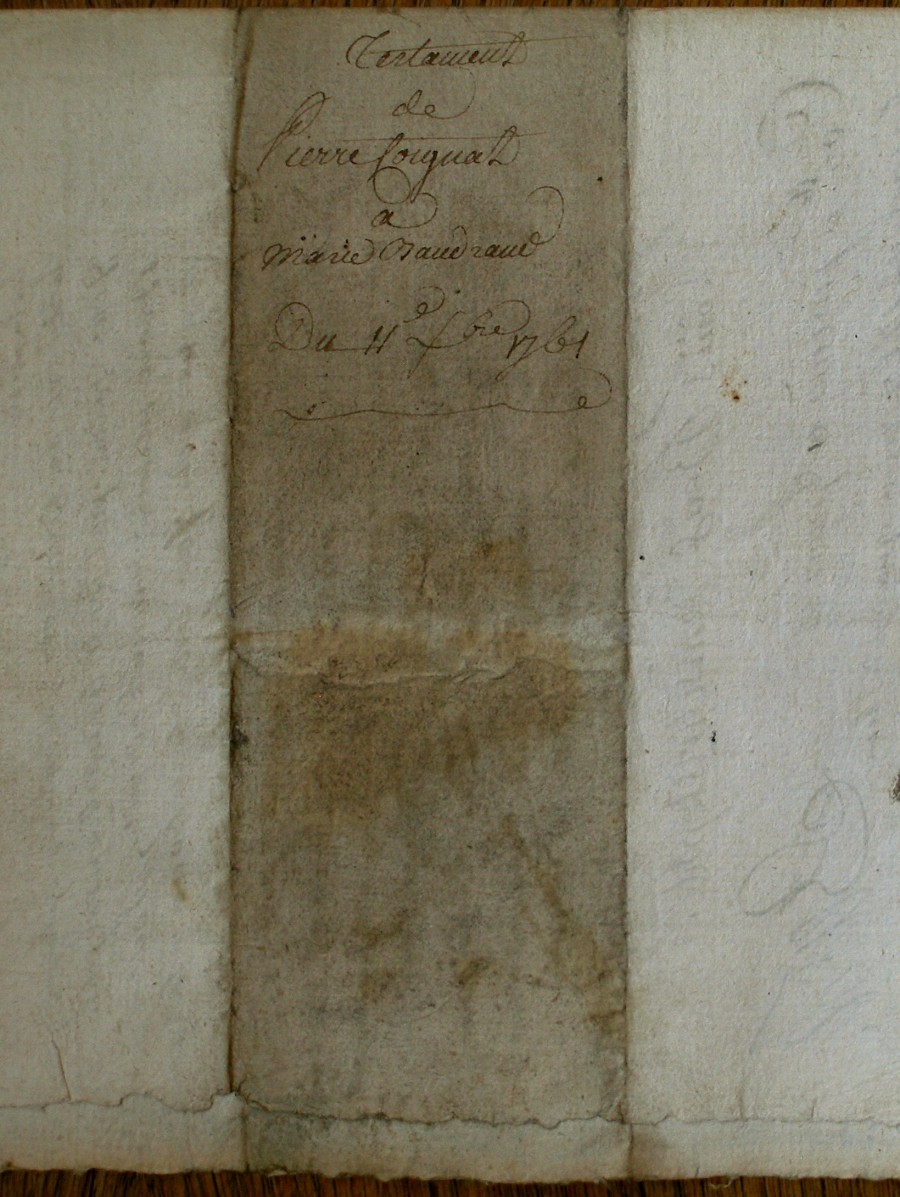 Testament
de
Pierre Coignat
a
Marie Baudrand
Du 11e bre 1761